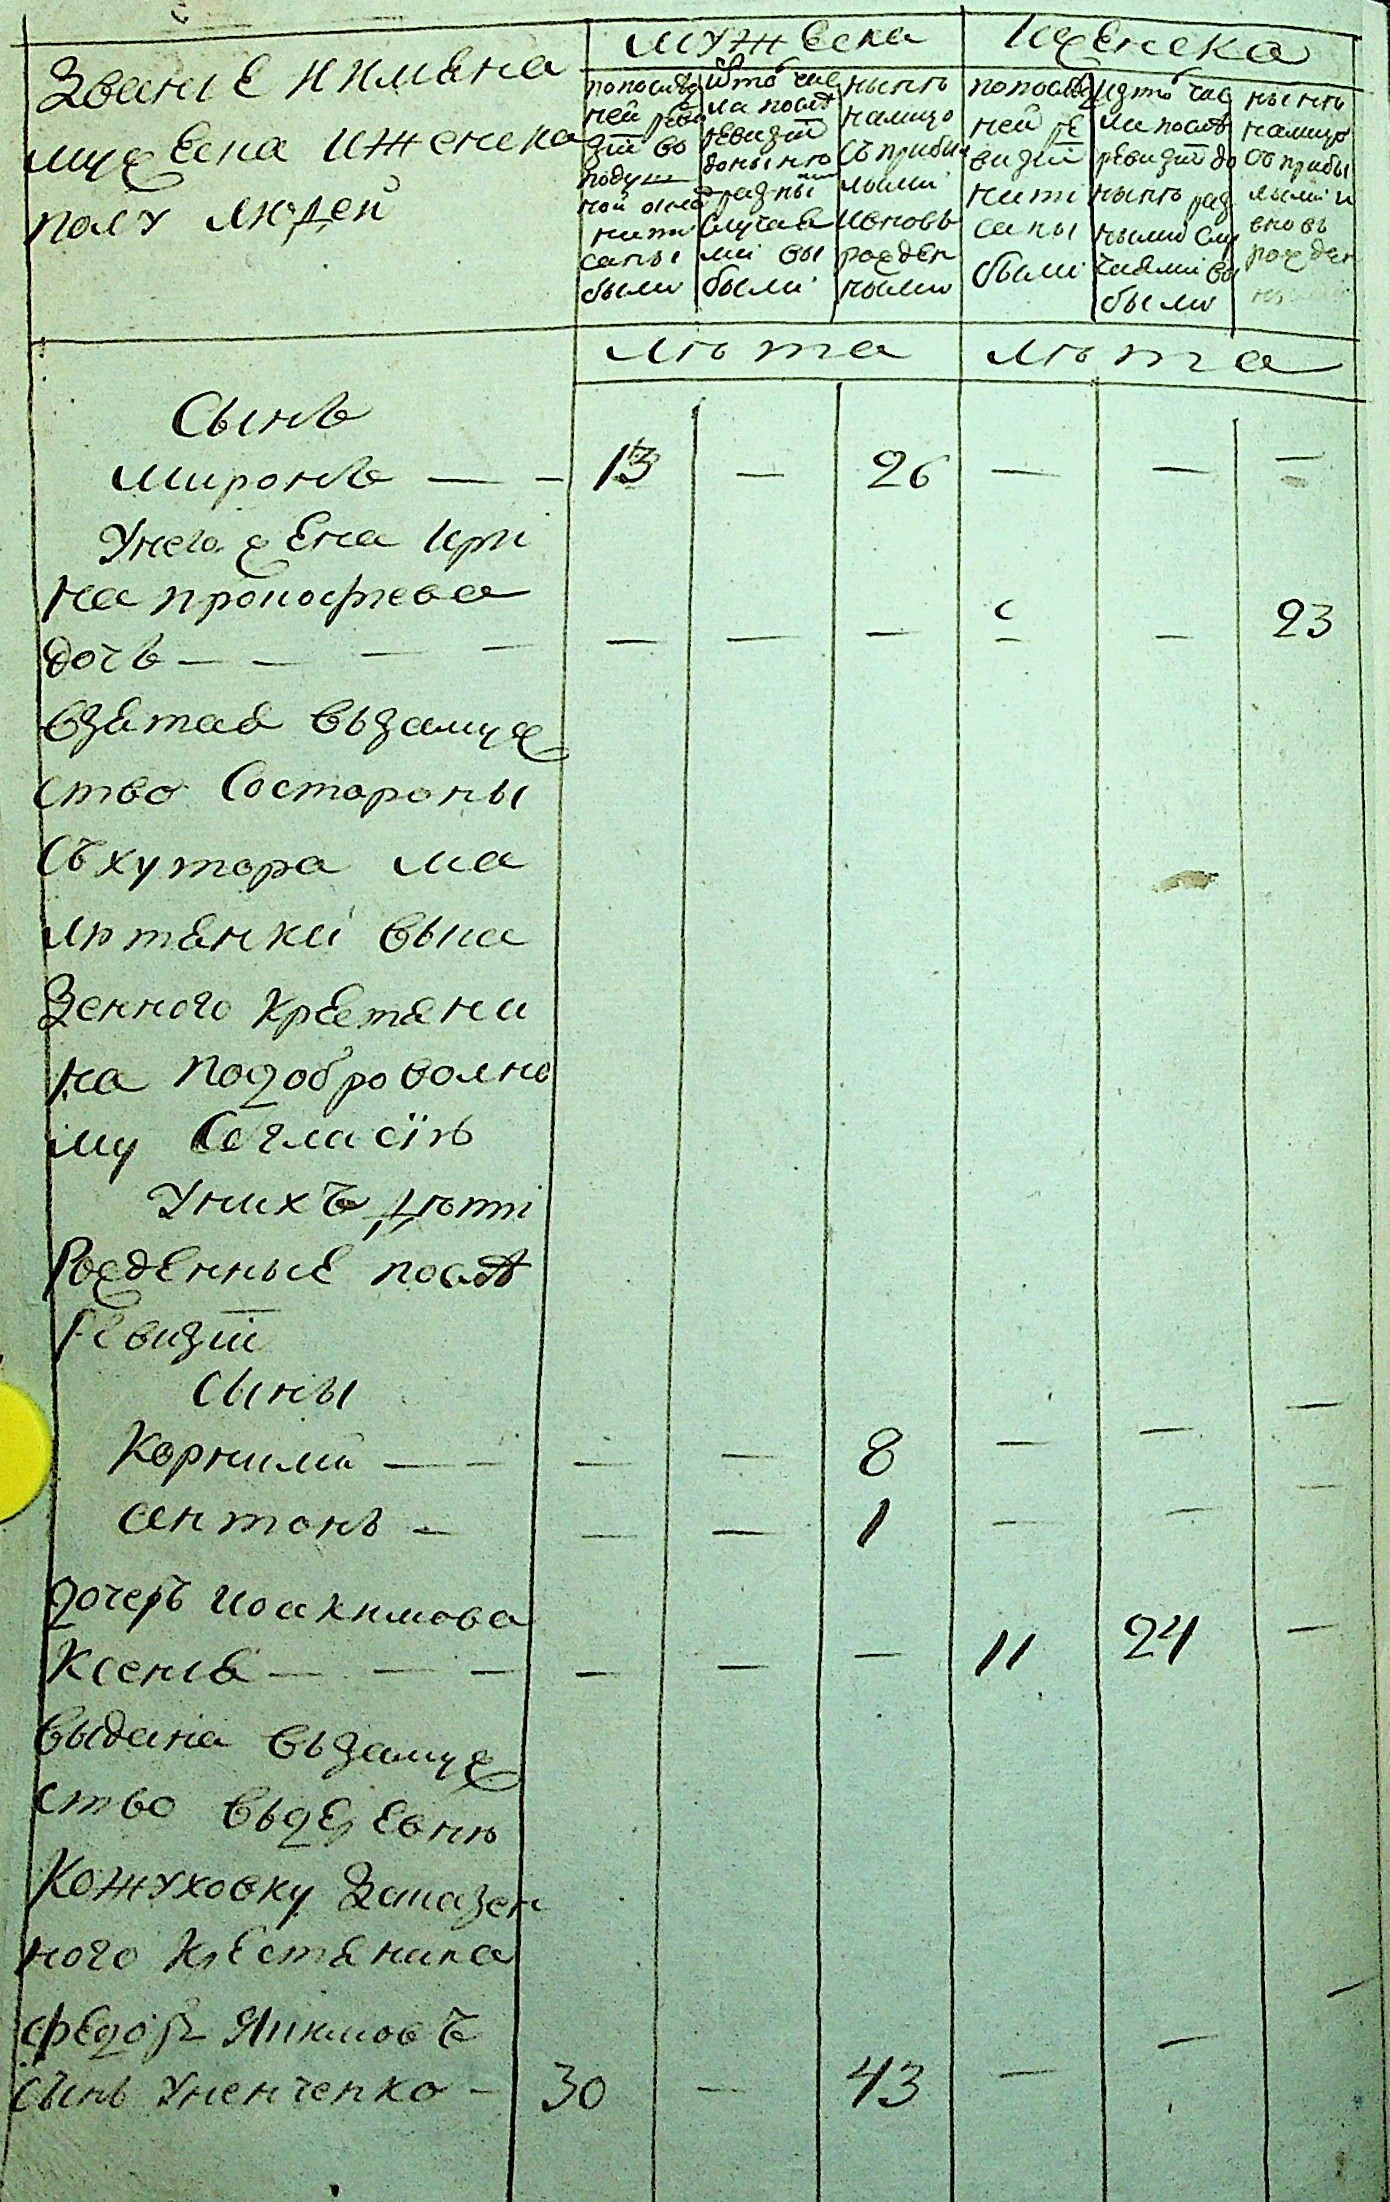 Званıе и имѣна
мужеска и женска
полу людей
мужеска
женска
по послѣд
ней реви
зіи во
поду
ной окла
писаны
были
ис того чис
ла послѣ
ревизіи
до нынѣ
разны
случая
ми вы
были
нынѣ
налицо
съ прибы
лыми
и вновь
рожден
ными
по послѣд
ней ре
визіи
напи
саны
были
из того чис
ла послѣ
ревизіи до
нынѣ раз
ными слу
чаями вы
были
нынѣ
налицо
съ прибы
лыми и
вновь
рожден
ными
лѣта
лѣта
Сынъ
миронъ — — 13 — 26 — — —
У него жена Ири
на прокофьева
дочь — — — — — — — — — 23
взятая въ замуж
ство со стороны
съ хутора ма
лютянки выка
зенного крестяни
на по доброволно
му согласїю
У нихъ дѣти
рожденные послѣ
ревизіи
сыны
Корнилий — — — — 8 — — —
антонъ — — — 1 — — —
дочерь иоакимова
Ксения — — — — — — 11 24 —
выдана въ замуж
ство въ деревню
Кожуховку за казен
ного крестянина
федоръ Якимовъ
сынъ Уненченко — 30 — 43 — — —